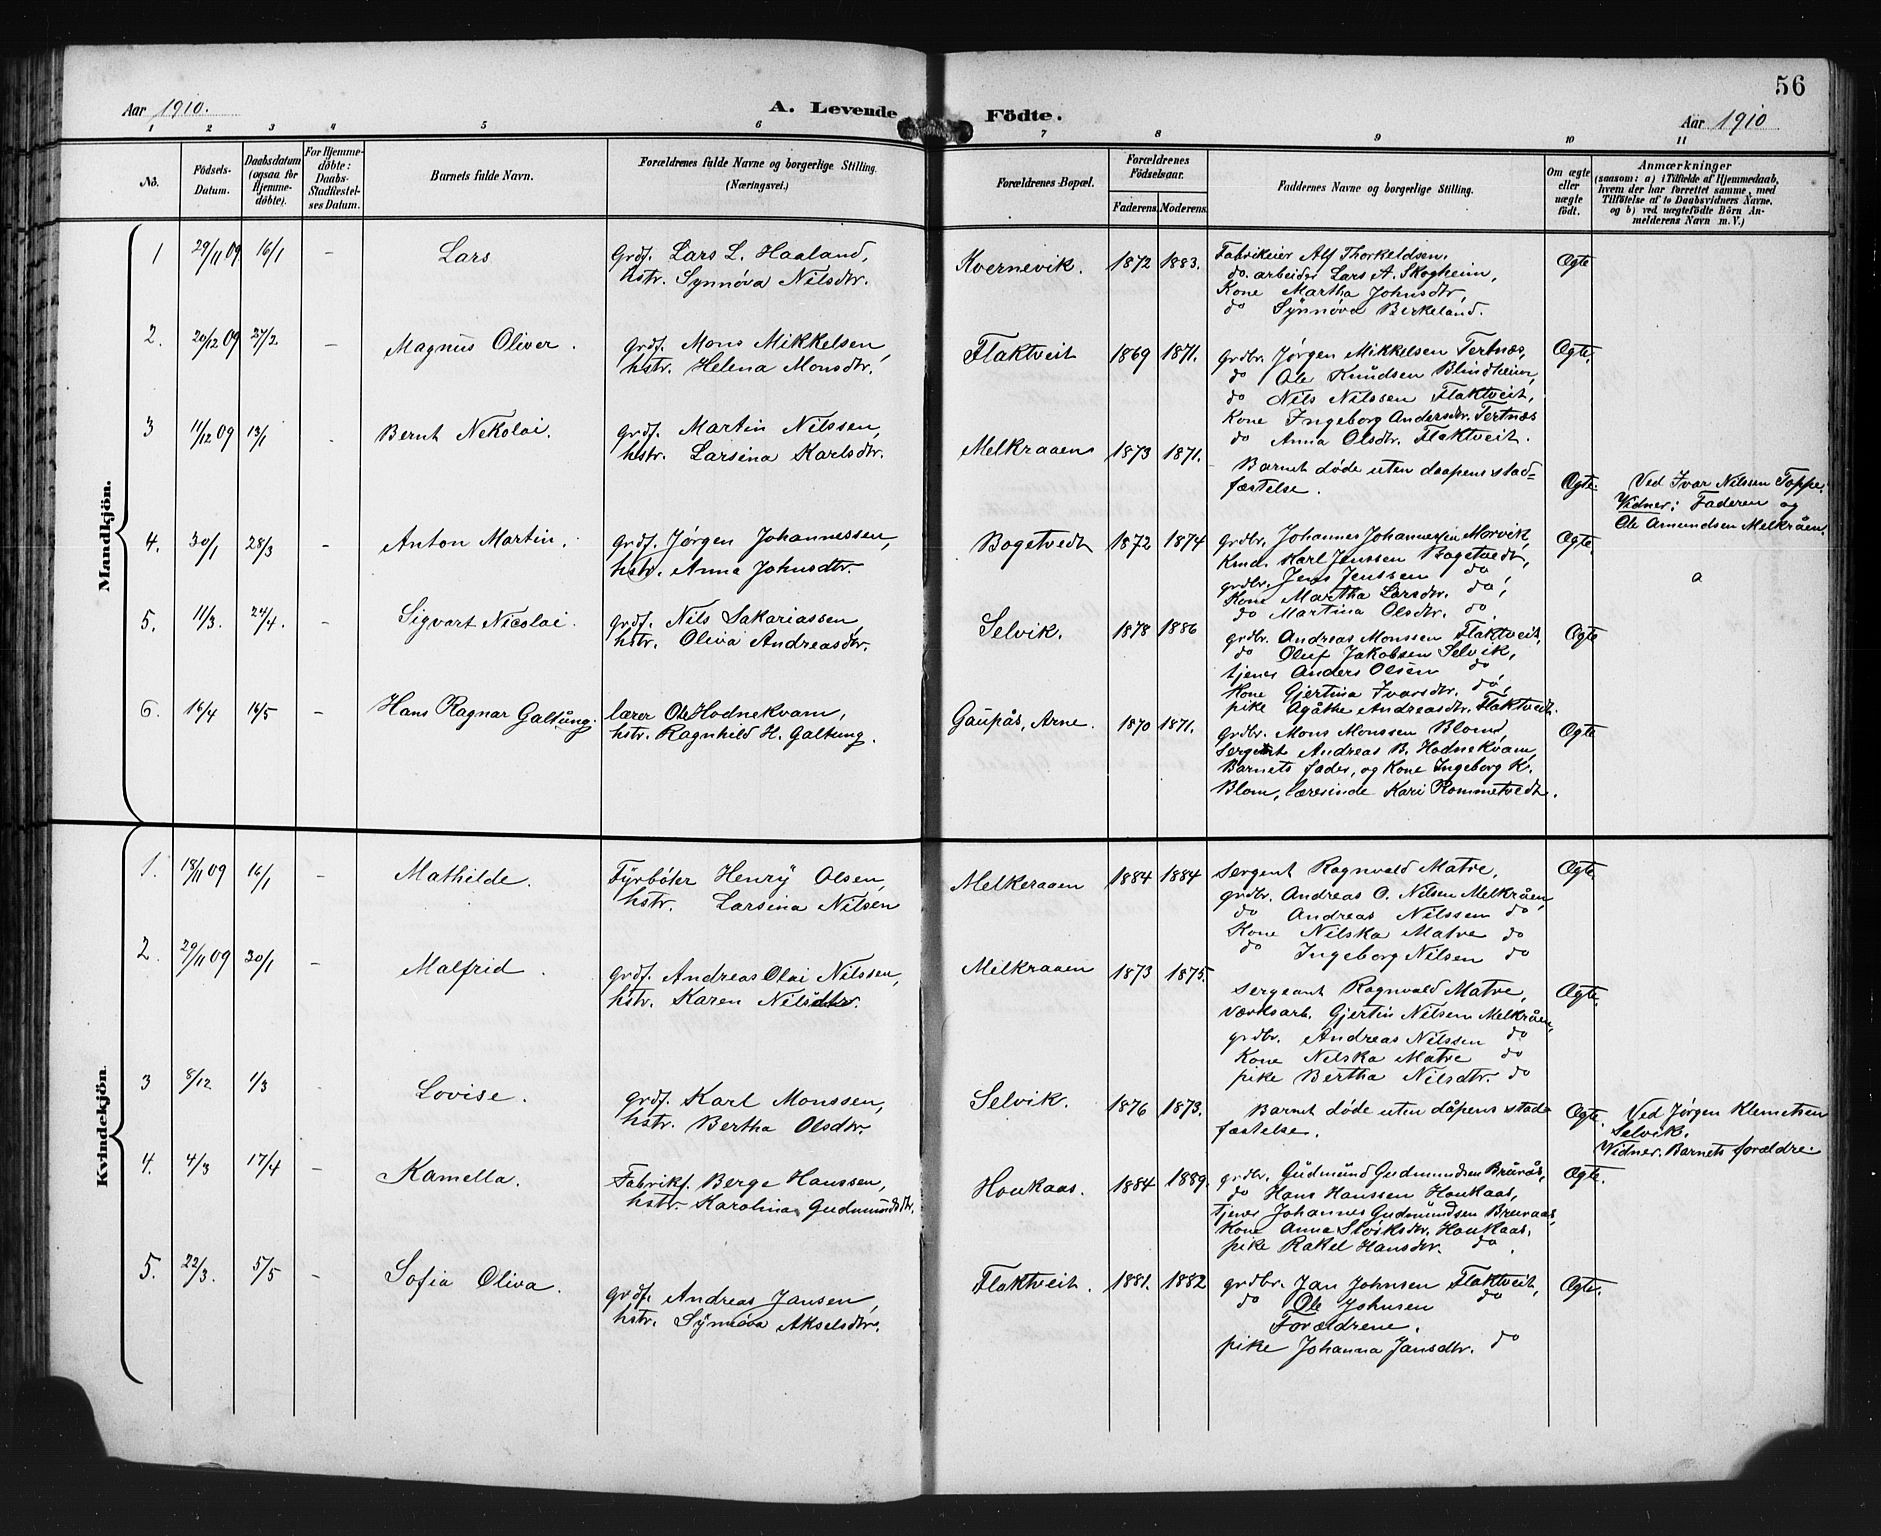 56
Aar 1910.
A. Levende Födte.
Aar 1910
1 2 3 4 5 6 7 8 9 10 11
No.
Födsels-
Datum.
Daabsdatum
(ogsaa for
Hjemme-
döbte).
For Hjemme-
döbte:
Daabs-
Stadfæstel-
ses Datum.
Barnets fulde Navn.
Forældrenes fulde Navne og borgerlige Stilling.
(Næringsvei.)
Forældrenes Bopæl.
Forældrenes
Födselsaar.
Faderens. Moderens.
Faddernes Navne og borgerlige Stilling.
Om ægte
eller
uægte
födt.
Anmærkninger
(saasom: a) i Tilfælde af Hjemmedaab,
hvem der har forrettet samme, med
Tilföielse af to Daabsvidners Navne.
og b) ved uægtefödte Börn An-
melderens Navn m. V.)
Mandkjön.
1 29/11 09 16/1 - Lars
Grdf. Lars L. Haaland,
hstr. Synnøva Nilsdtr.
Kvernevik. 1872 1883.
Fabrikeier Alf Thorkeldsen,
do. arbeider Lars A. Skogheim,
Kone Martha Johnsdtr,
do Synnøva Birkeland.
Ægte
2. 20/12 09 27/2. - Magnus Oliver.
grdf. Mons Mikkelsen,
hstr. Helena Monsdtr.
Flaktveit 1869 1871.
grdbr. Jørgen Mikkelsen Tertnæs,
do Ole Knudsen Blindheim,
do Nils Nilssen Flaktveit,
Kone Ingeborg Andersdtr. Tertnæs
do Anna Olsdtr. Flaktveit.
Ægte.
3 11/12 09 13/1 - Bernt Nekolai.
grdf. Martin Nilssen,
hstr. Larsina Karlsdtr.
Melkraaen 1873 1871.
Barnet døde uten daapens stad=
fæstelse.
Ægte.
Ved Ivar Nilssen Toppe.
Vidner: Faderen og
Ole Amundsen Melkråen.
4. 30/1 28/3 - Anton Martin.
grdf. Jørgen Johannessen,
hstr. Anna Johnsdtr.
Bogetvedt 1872 1874
grdbr. Johannes Johannessen Morvik,
Kmd. Karl Jenssen Bogetvedt,
grdbr. Jens Jenssen do,
Kone Martha Larsdtr. do,
do Martina Olsdtr. do.
Ægte
a
5. 11/3. 24/4. - Sigvart Nicolai.
grdf. Nils Sakariassen,
hstr. Oliva Andreasdtr.
Selvik. 1878 1886
grdbr. Andreas Monssen Flaktveit,
do Oluf Jakobsen Selvik,
tjener Anders Olsen do
Kone Gjertina Ivarsdtr. do,
pike Agåthe Andreasdtr. Flaktveit.
Ægte
6. 16/4 16/5 - Hans Ragnar Galtung.
lærer Ole Hodnekvam,
hstr. Ragnhild H. Galtung.
Gaupås, Arne. 1870 1871.
grdbr. Mons Monssen Blom,
Sergent Andreas B. Hodnekvam,
Barnets fader, og Kone Ingeborg K.
Blom, lærerinde Kari Rommetvedt.
Ægte
Kvindekjön.
1. 18/11 09 16/1 - Mathilde.
Fyrbøter Henry Olsen,
hstr. Larsina Nilsen
Melkeraaen 1884 1884
Sergent Ragnvald Matre,
grdbr. Andreas O. Nilsen Melkråen,
do Andreas Nilssen do
Kone Nilska Matre do
do Ingeborg Nilsen do
Ægte.
2. 29/11 09 30/1 - Malfrid.
grdf. Andreas Olai Nilssen,
hstr. Karen Nilsdtr.
Melkraaen 1873 1875.
Sergeant Ragnvald Matre,
Værksarb. Gjertin Nilsen Melkråen,
grdbr. Andreas Nilssen do
Kone Nilska Matre do
pike Bertha Nilsdtr. do
Ægte.
3 8/12 1/3 - Lovise.
grdf. Karl Monssen,
hstr. Bertha Olsdtr.
Selvik. 1876 1873.
Barnet døde uten dåpens stad=
fæstelse.
Ægte.
Ved Jørgen Klemetsen
Selvik.
Vidner. Barnets forældre.
4. 4/3 17/4 - Kamella.
Fabrikf. Berge Hanssen,
hstr. Karolina Gudmundsdtr.
Houkaas. 1884 1889.
grdbr. Gudmund Gudmundsen Bruråas,
do Hans Hanssen Houkaas,
tjener Johannes Gudmundsen Bruraas,
Kone Anna Størksdtr. Houkaas,
pike Rakel Hansdtr. do.
Ægte.
5. 22/3. 5/5 - Sofia Oliva.
grdf. Andreas Jansen,
hstr. Synnøva Akselsdtr.
Flaktveit. 1881. 1882
grdbr. Jan Johnsen Flaktveit,
do Ole Johnsen do
Forældrene.
pike Johanna Jansdtr. do
Ægte.